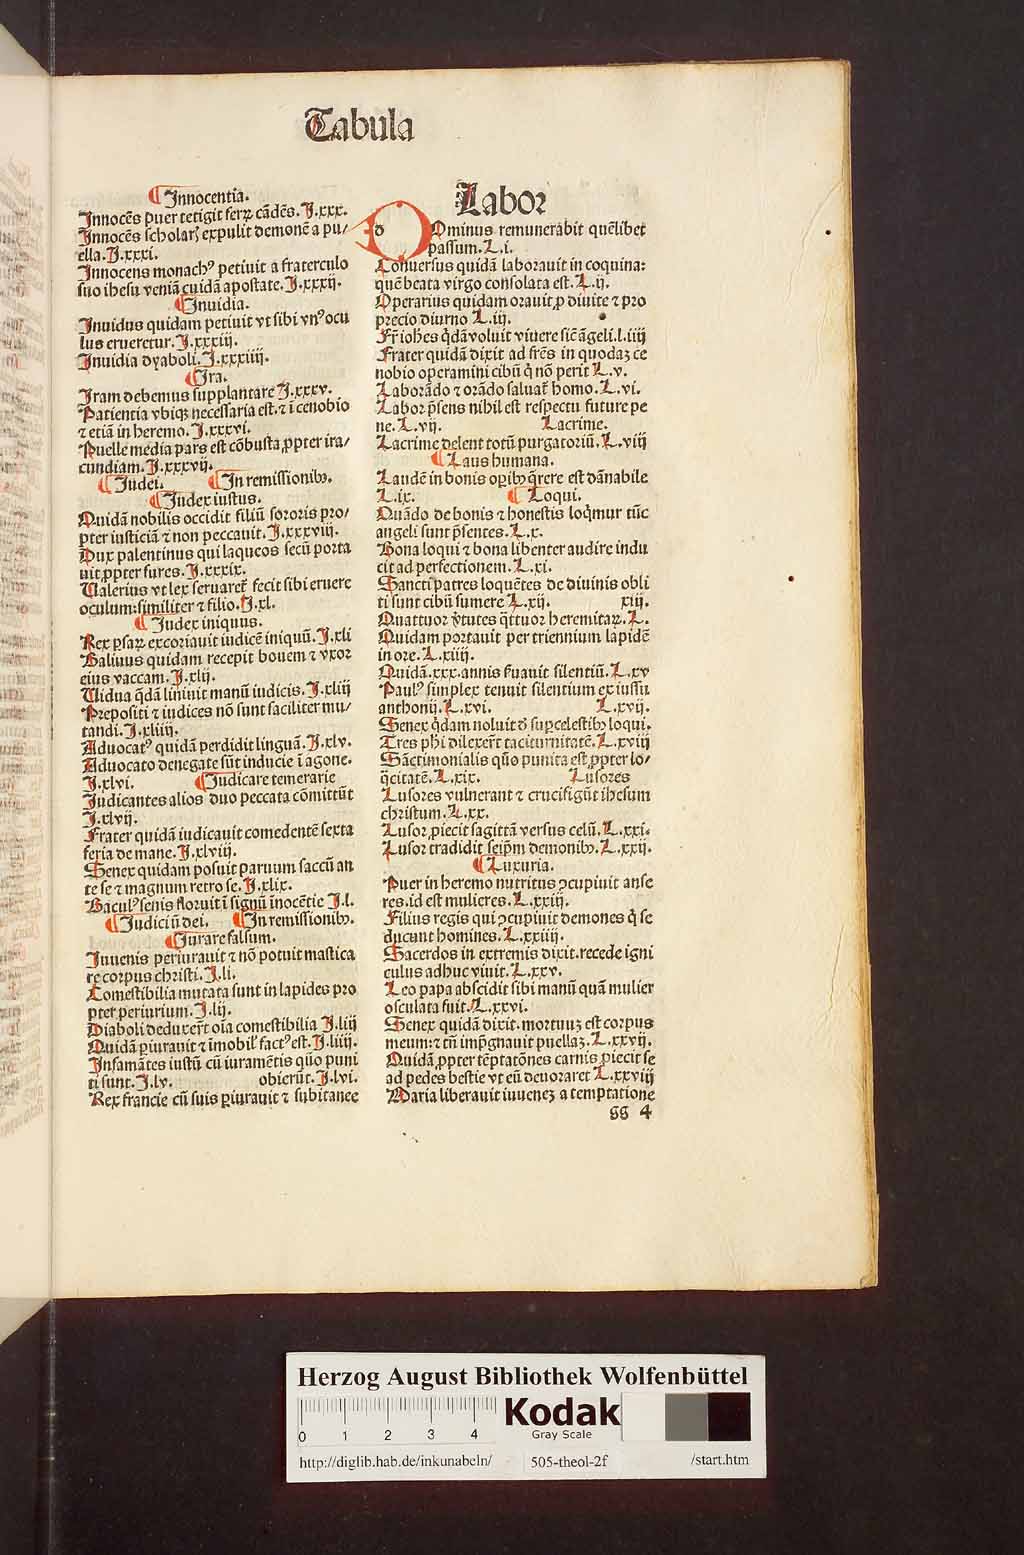 Tabula
¶ Innocentia.
Innocēs puer tetigit ferꝝ cādēs. J.xxx.
Innocēs scholarꝭ expulit demonē a pu/
ella. J.xxxi.
Innocens monachꝰ petiuit a fraterculo
suo ihesu veniā cuidā apostate. J.xxxij.
¶ Inuidia.
Inuidus quidam petiuit vt sibi vnꝰ ocu
lus erueretur. J.xxxiij.
Inuidia dyaboli. J.xxxiiij.
¶ Ira.
Iram debemus supplantare J.xxxv.
Patientia vbiqꝫ necessaria est. ⁊ ī cenobio
⁊ etiā in heremo. J.xxxvi.
Puelle media pars est cōbusta ꝓpter ira/
cundiam. J.xxxvij.
¶ Judei. ¶ In remissionibꝰ.
¶ Judex iustus.
Quidā nobilis occidit filiū sororis pro/
pter iusticiā ⁊ non peccauit. J.xxxviij.
Dux palentinus qui laqueos secū porta
uit ꝓpter fures. J.xxxix.
Valerius vt lex seruaret᷑ fecit sibi eruere
oculum: similiter ⁊ filio. J.xl.
¶ Judex iniquus.
Rex ꝑsaꝝ excoriauit iudicē iniquū. J.xli
Baliuus quidam recepit bouem ⁊ vxor
eius vaccam. J.xlij.
Vidua q̄dā liniuit manū iudicis. J.xliij
Prepositi ⁊ iudices nō sunt faciliter mu/
tandi. J.xliiij.
Aduocatꝰ quidā perdidit linguā. J.xlv.
Aduocato denegate sūt inducie ī agone.
J.xlvi. ¶ Judicare temerarie
Judicantes alios duo peccata cōmittūt
J.xlvij.
Frater quidā iudicauit comedentē sexta
feria de mane. J.xlviij.
Senex quidam posuit paruum saccū an
te se ⁊ magnum retro se. J.xlix.
Baculꝰ senis floruit ī signū īnocētie J.l.
¶ Judiciū dei. ¶ In remissionibꝰ.
¶ Jurare falsum.
Juuenis periurauit ⁊ nō potuit mastica
re corpus christi. J.li.
Comestibilia mutata sunt in lapides pro
pter periurium. J.lij.
Diaboli deduxer̄t oīa comestibilia J.liij
Quidā ꝑiurauit ⁊ īmobilꝭ factꝰ est. J.liiij.
Infamātes iustū cū iuramētis quō puni
ti sunt. J.lv. obierūt. J.lvi.
Rex francie cū suis ꝑiurauit ⁊ subitanee
Labor
d Ominus remunerabit quēlibet
passum. L.i.
Conuersus quidā laborauit in coquina:
quē beata virgo consolata est. L.ij.
Operarius quidam orauit ꝓ diuite ⁊ pro
precio diurno L.iij.
Fr̄ ioh̄es q̄dā voluit viuere sic āgeli. l.iiij
Frater quidā dixit ad fr̄es in quodaꝫ ce
nobio operamini cibū q̄ nō perit L.v.
Laborādo ⁊ orādo saluat᷑ homo. L.vi.
Labor p̄sens nihil est respectu future pe
ne. L.vij. Lacrime.
Lacrime delent totū purgatoriū. L.viij
¶ Laus humana.
Laudē in bonis oꝑibꝰ q̄rere est dānabile
L.ix. ¶ Loqui.
Quādo de bonis ⁊ honestis loq̄mur tūc
angeli sunt p̄sentes. L.x.
Bona loqui ⁊ bona libenter audire indu
cit ad perfectionem. L.xi.
Sancti patres loquētes de diuinis obli
ti sunt cibū sumere L.xij. xiij.
Quattuor v̓tutes q̄ttuor heremitaꝝ. L.
Quidam portauit per triennium lapidē
in ore. L.xiiij.
Quidā .xxx. annis s̓uauit silentiū. L.xv
Paulꝰ simplex tenuit silentium ex iussu
anthonij. L.xvi. L.xvij.
Senex q̄dam noluit d̓ suꝑcelestibꝰ loqui.
Tres ph̄i dilexer̄t taciturnitatē. L.xviij
Sāctimonialis quō punita est ꝓpter lo/
q̄citatē. L.xix. Lusores
Lusores vulnerant ⁊ crucifigūt ihesum
christum. L.xx.
Lusor ꝓiecit sagittā versus celū. L.xxi.
Lusor tradidit seip̄m demonibꝰ. L.xxij.
¶ Luxuria.
Puer in heremo nutritus ꝯcupiuit anse
res. id est mulieres. L.xxiij.
Filius regis qui ꝯcupiuit demones q̄ se
ducunt homines. L.xxiiij.
Sacerdos in extremis dixit. recede igni
culus adhuc viuit. L.xxv.
Leo papa abscidit sibi manū quā mulier
osculata fuit. L.xxvi.
Senex quidā dixit. mortuuꝫ est corpus
meum: ⁊ tn̄ imp̄gnauit puellaꝫ. L.xxvij.
Quidā ꝓpter tēptatōnes carnis ꝓiecit se
ad pedes bestie vt eū deuoraret L.xxviij
Maria liberauit iuueneꝫ a temptatione
gg 4
Herzog August Bibliothek Wolfenbüttel
0 1 2 3 4
Kodak
Gray Scale
http://diglib.hab.de/inkunabeln/ 505-theol-2f /start.htm